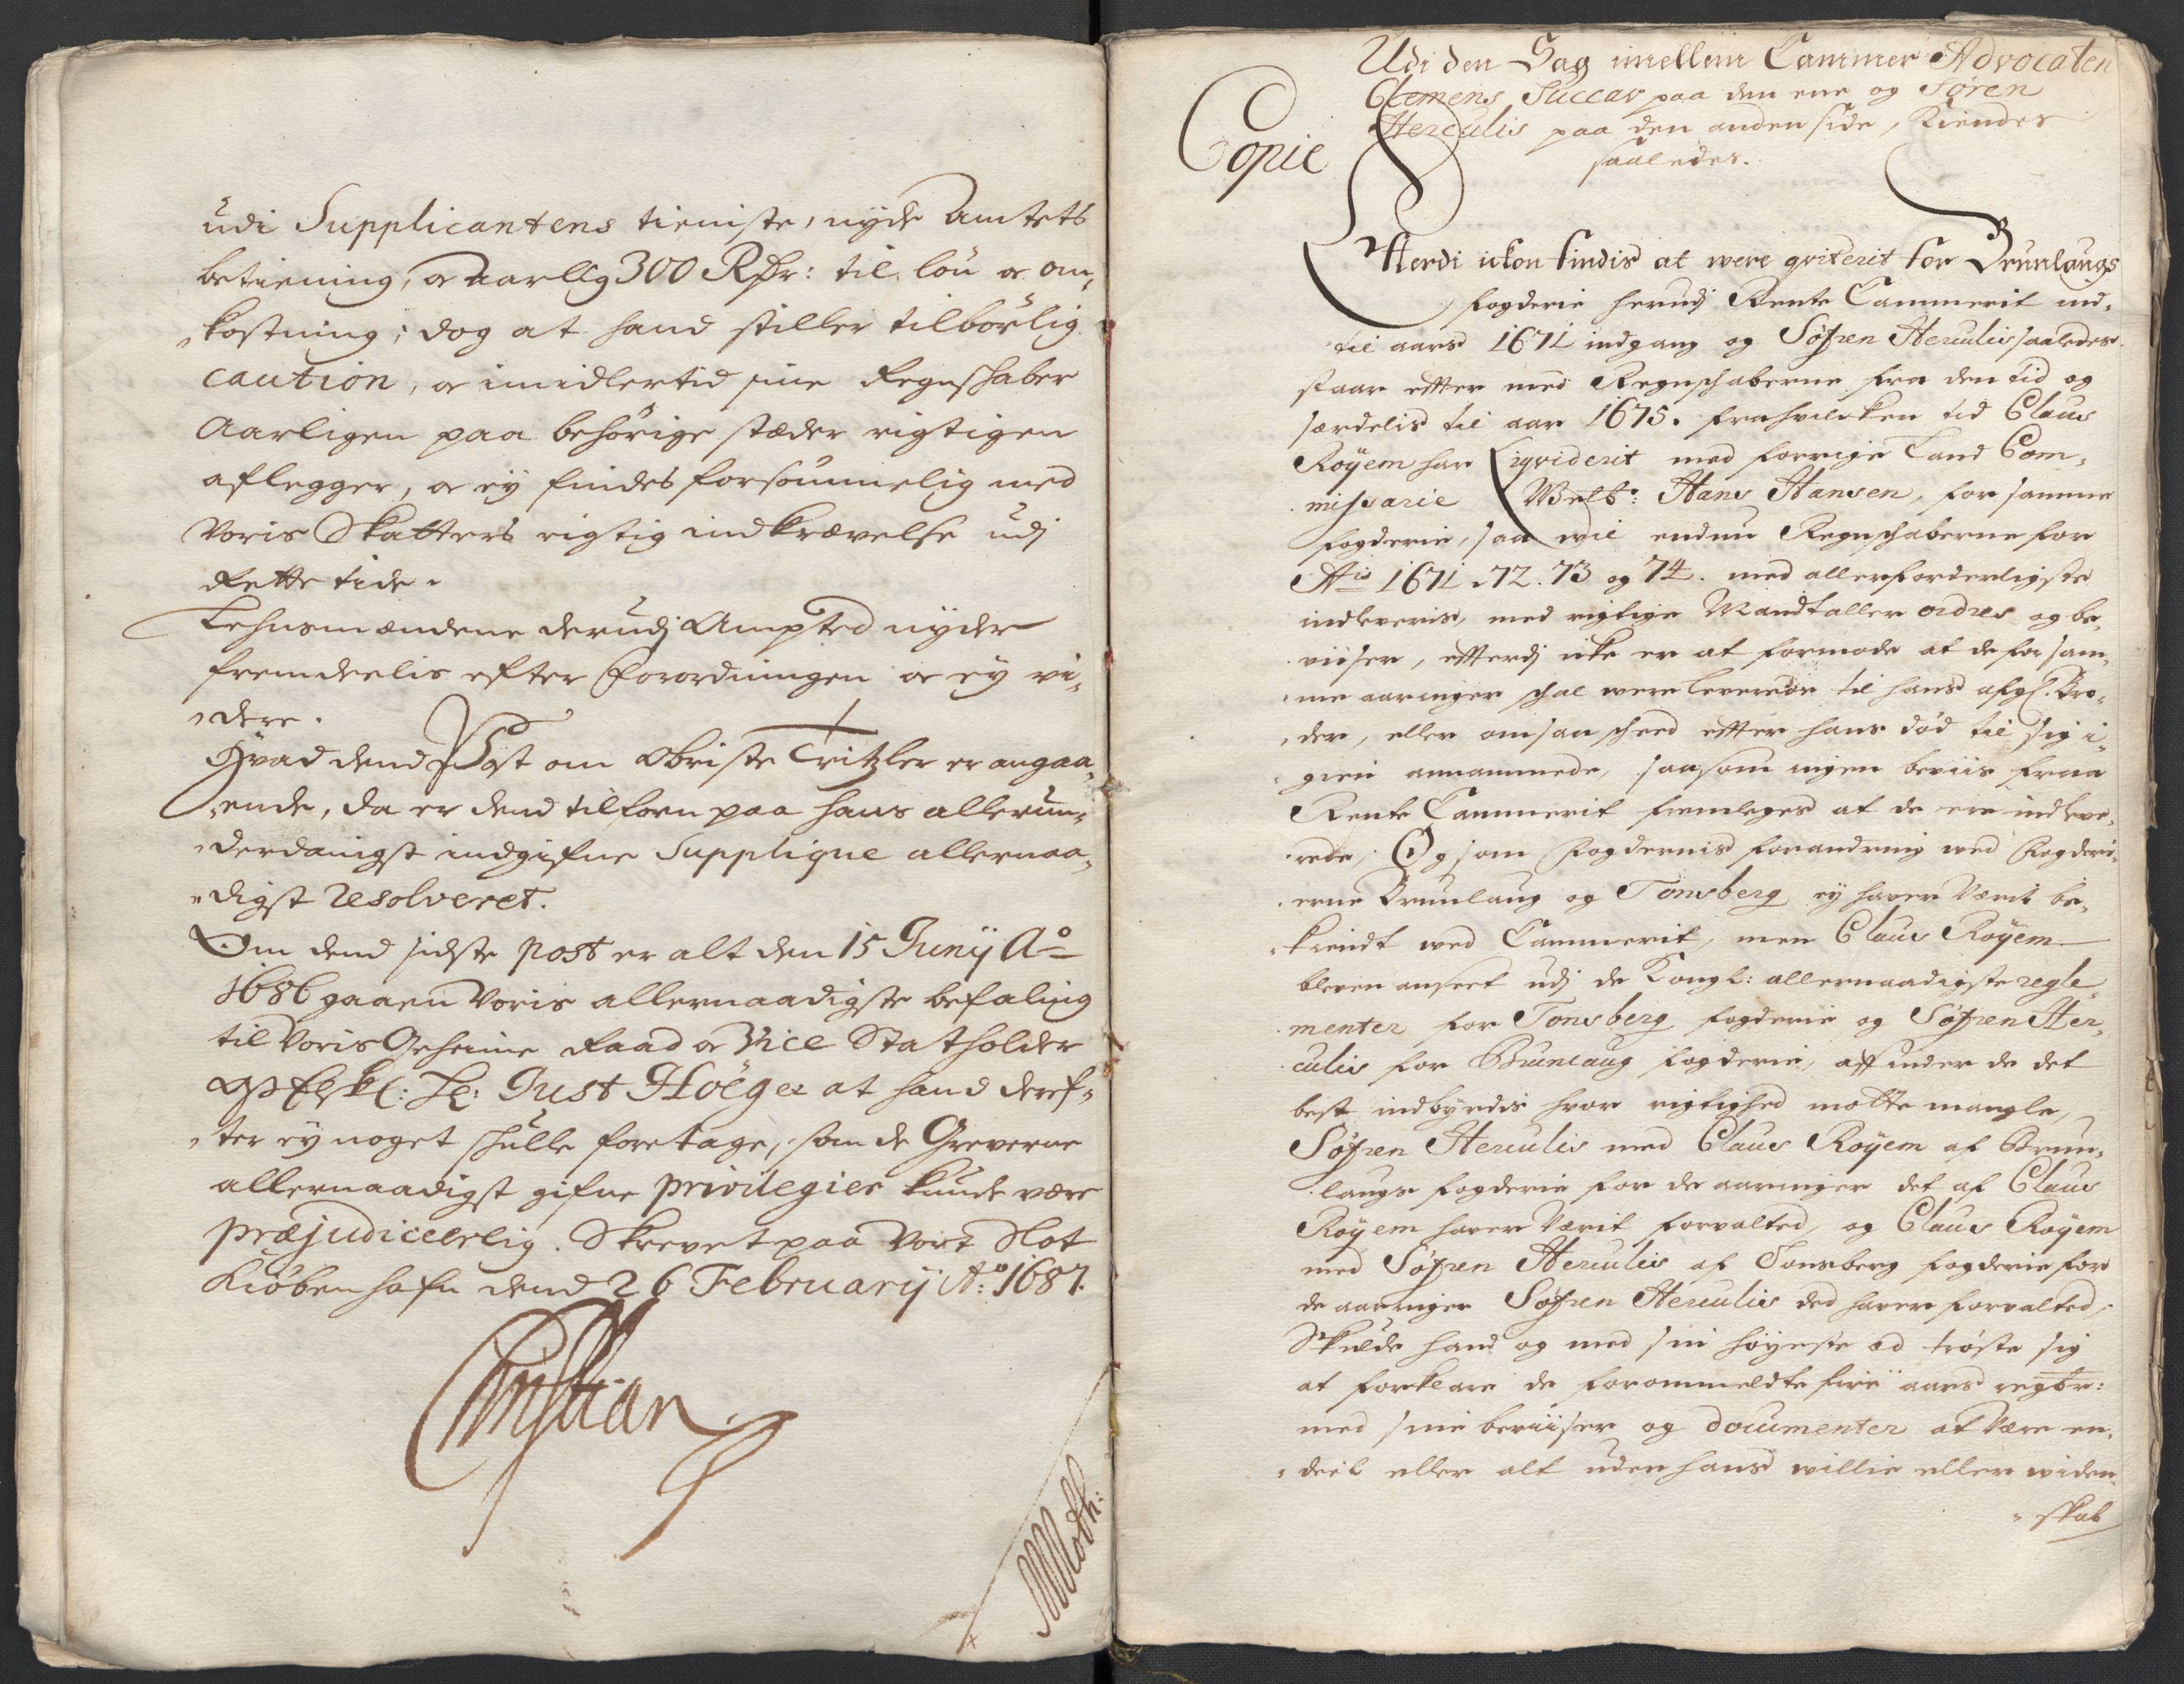 udi Supplicantens tieniste, nyde Amtets
betiening, oc aarlig 300 Rdr: til løn oc om„
„kostning; dog at hand stiller tilbørlig
caution, oc imidlertid sine Regnschaber
Aarligen paa behørige stæder rigtigen
aflegger, oc ey findes forsømmelig med
Voris Skatters rigtig indkrævelse udj
Rette tide.
Lehnsmændene derudj Ampted nyder
fremdeelis efter Forordningen oc ey vi„
„dere.
Hvad dend Post om Obriste Tritzler er angaa„
„ende, da er dend tilforn paa hans allerun„
„derdanigst indgifne Supplique allernaa„
„digst resolveret.
Om dend sidste post er alt den 15 Junij Ao
1686 gaaen Voris allernaadigste befaling
til Voris Geheime Raad oc Vice Statholder
Just Høeg at hand deref„
„ter ey noget schulle foretage, som de Greverne
allernaadigst gifne privilegier kunde være
præjudiceerlig. Skrevet paa Vort Slot
Kiøbenhafn dend 26 Februarij Ao: 1687.
Christian
MMoth:
Copie
Udi den Sag imellem Cammer Advocaten
Clemens Succav paa den ene og Søren
Herculis paa den anden side, Kiendes
saaledes.
Efterdi icken findis at were qviterit for Brunlaugs
fogderie herudj Rente Cammerit ind„
til aars 1671 indgang og Søfren Herculis saaledes
staar effter med Regnschaberne fra den tid og
særdelis til aar 1675. fra hvilcken tid Claus
Røyem har Liqviderit med forrige Land Com„
missarie Welb: Hans Hansen, for samme
fogderie, saa wil endnu Regnschaberne for
Ais 1671. 72. 73 og 74. med allerforderligste
indleveris, med rigtige Mandtaller ordres og be„
viiser, efterdj icke er at formode at de for sam„
„me aaringer schal were leverede til hans afg. Bro„
„der, eller om saa scheed effter hans død til sig i„
gien annammede, saasom ingen beviis fraa
Rente Cammerit fremleges at de ere indleve„
rede; Og som Fogdernis forandring wed Fogderi„
erne Brunlaug og Tonsberg ey haver Værit be„
„kiendt wed Cammerit, men Claus Røyem
bleven anseet udj de Kongl: allernaadigste regle„
menter for Tonsberg fogderie og Søfren Her„
culis for Brunlaug fogderie, aff inder de det
best indbyrdis hvor rigtighed motte mangle,
Søfren Herculis med Claus Røyem af Brun„
laugs fogderie for de aaringer det af Claus
Røyem haver Værit forvalted, og Claus Røyem
med Søfren Herculis af Tonsberg fogderie for
de aaringer Søfren Herculis ded haver forvalted,
Skulde hand og med sin høyeste æd trøste sig
at forklare de forommeldte fire aars regbr:
med sine beviiser og documenter at Være en„
„deel eller alt uden hans willie eller widen„
„skab